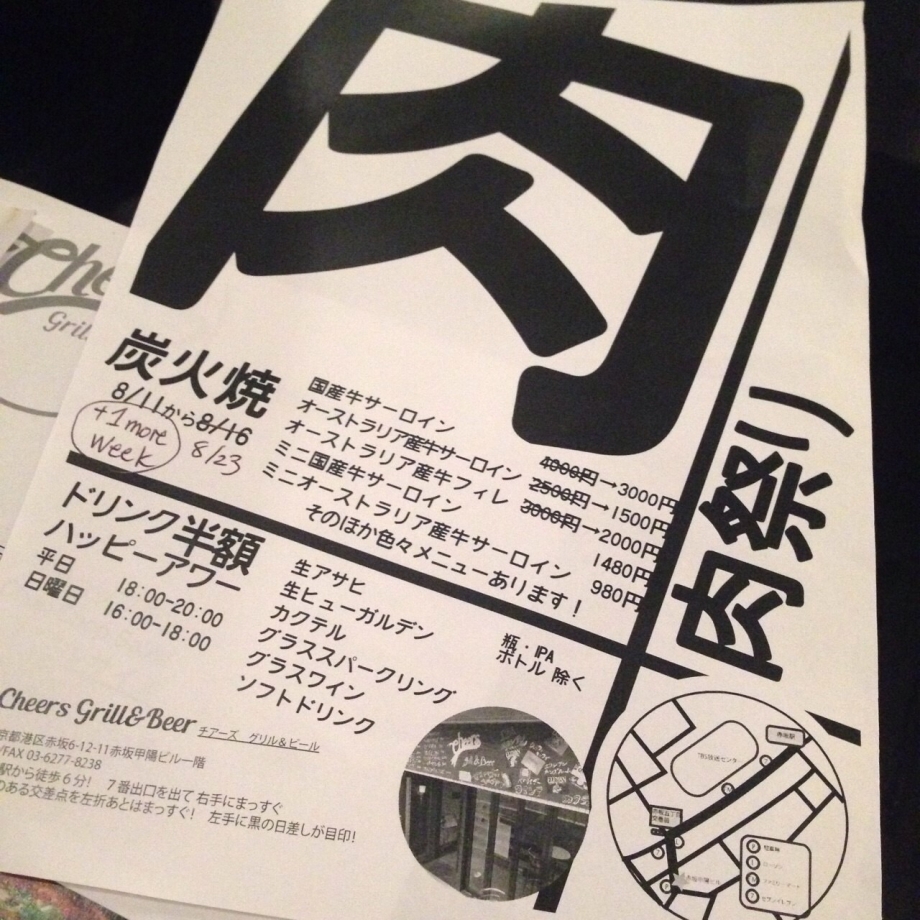 肉
肉祭り
Che
Grill
炭火焼
8/11から8/16
+1 more
week
8/23
国産牛サーロイン 4000円→3000円
オーストラリア産牛サーロイン 2500円→1500円
オーストラリア産牛フィレ 3000円→2000円
ミニ国産牛サーロイン 1480円
ミニオーストラリア産牛サーロイン 980円
そのほか色々メニューあります!
ドリンク半額
ハッピーアワー
平日 18:00-20:00
日曜日 16:00-18:00
生アサヒ
生ヒューガルデン
カクテル
グラススパークリング
グラスワイン
ソフトドリンク
瓶・IPA
ボトル 除く
Cheers Grill&Beer チアーズ グリル&ビール
京都港区赤坂6-12-11赤坂甲陽ビル一階
/FAX 03-6277-8238
駅から徒歩6分! 7番出口を出て 右手にまっすぐ
のある交差点を左折あとはまっすぐ! 左手に黒の日差しが目印!
Cheers
赤坂駅
TBS放送センター
セブンイレブン